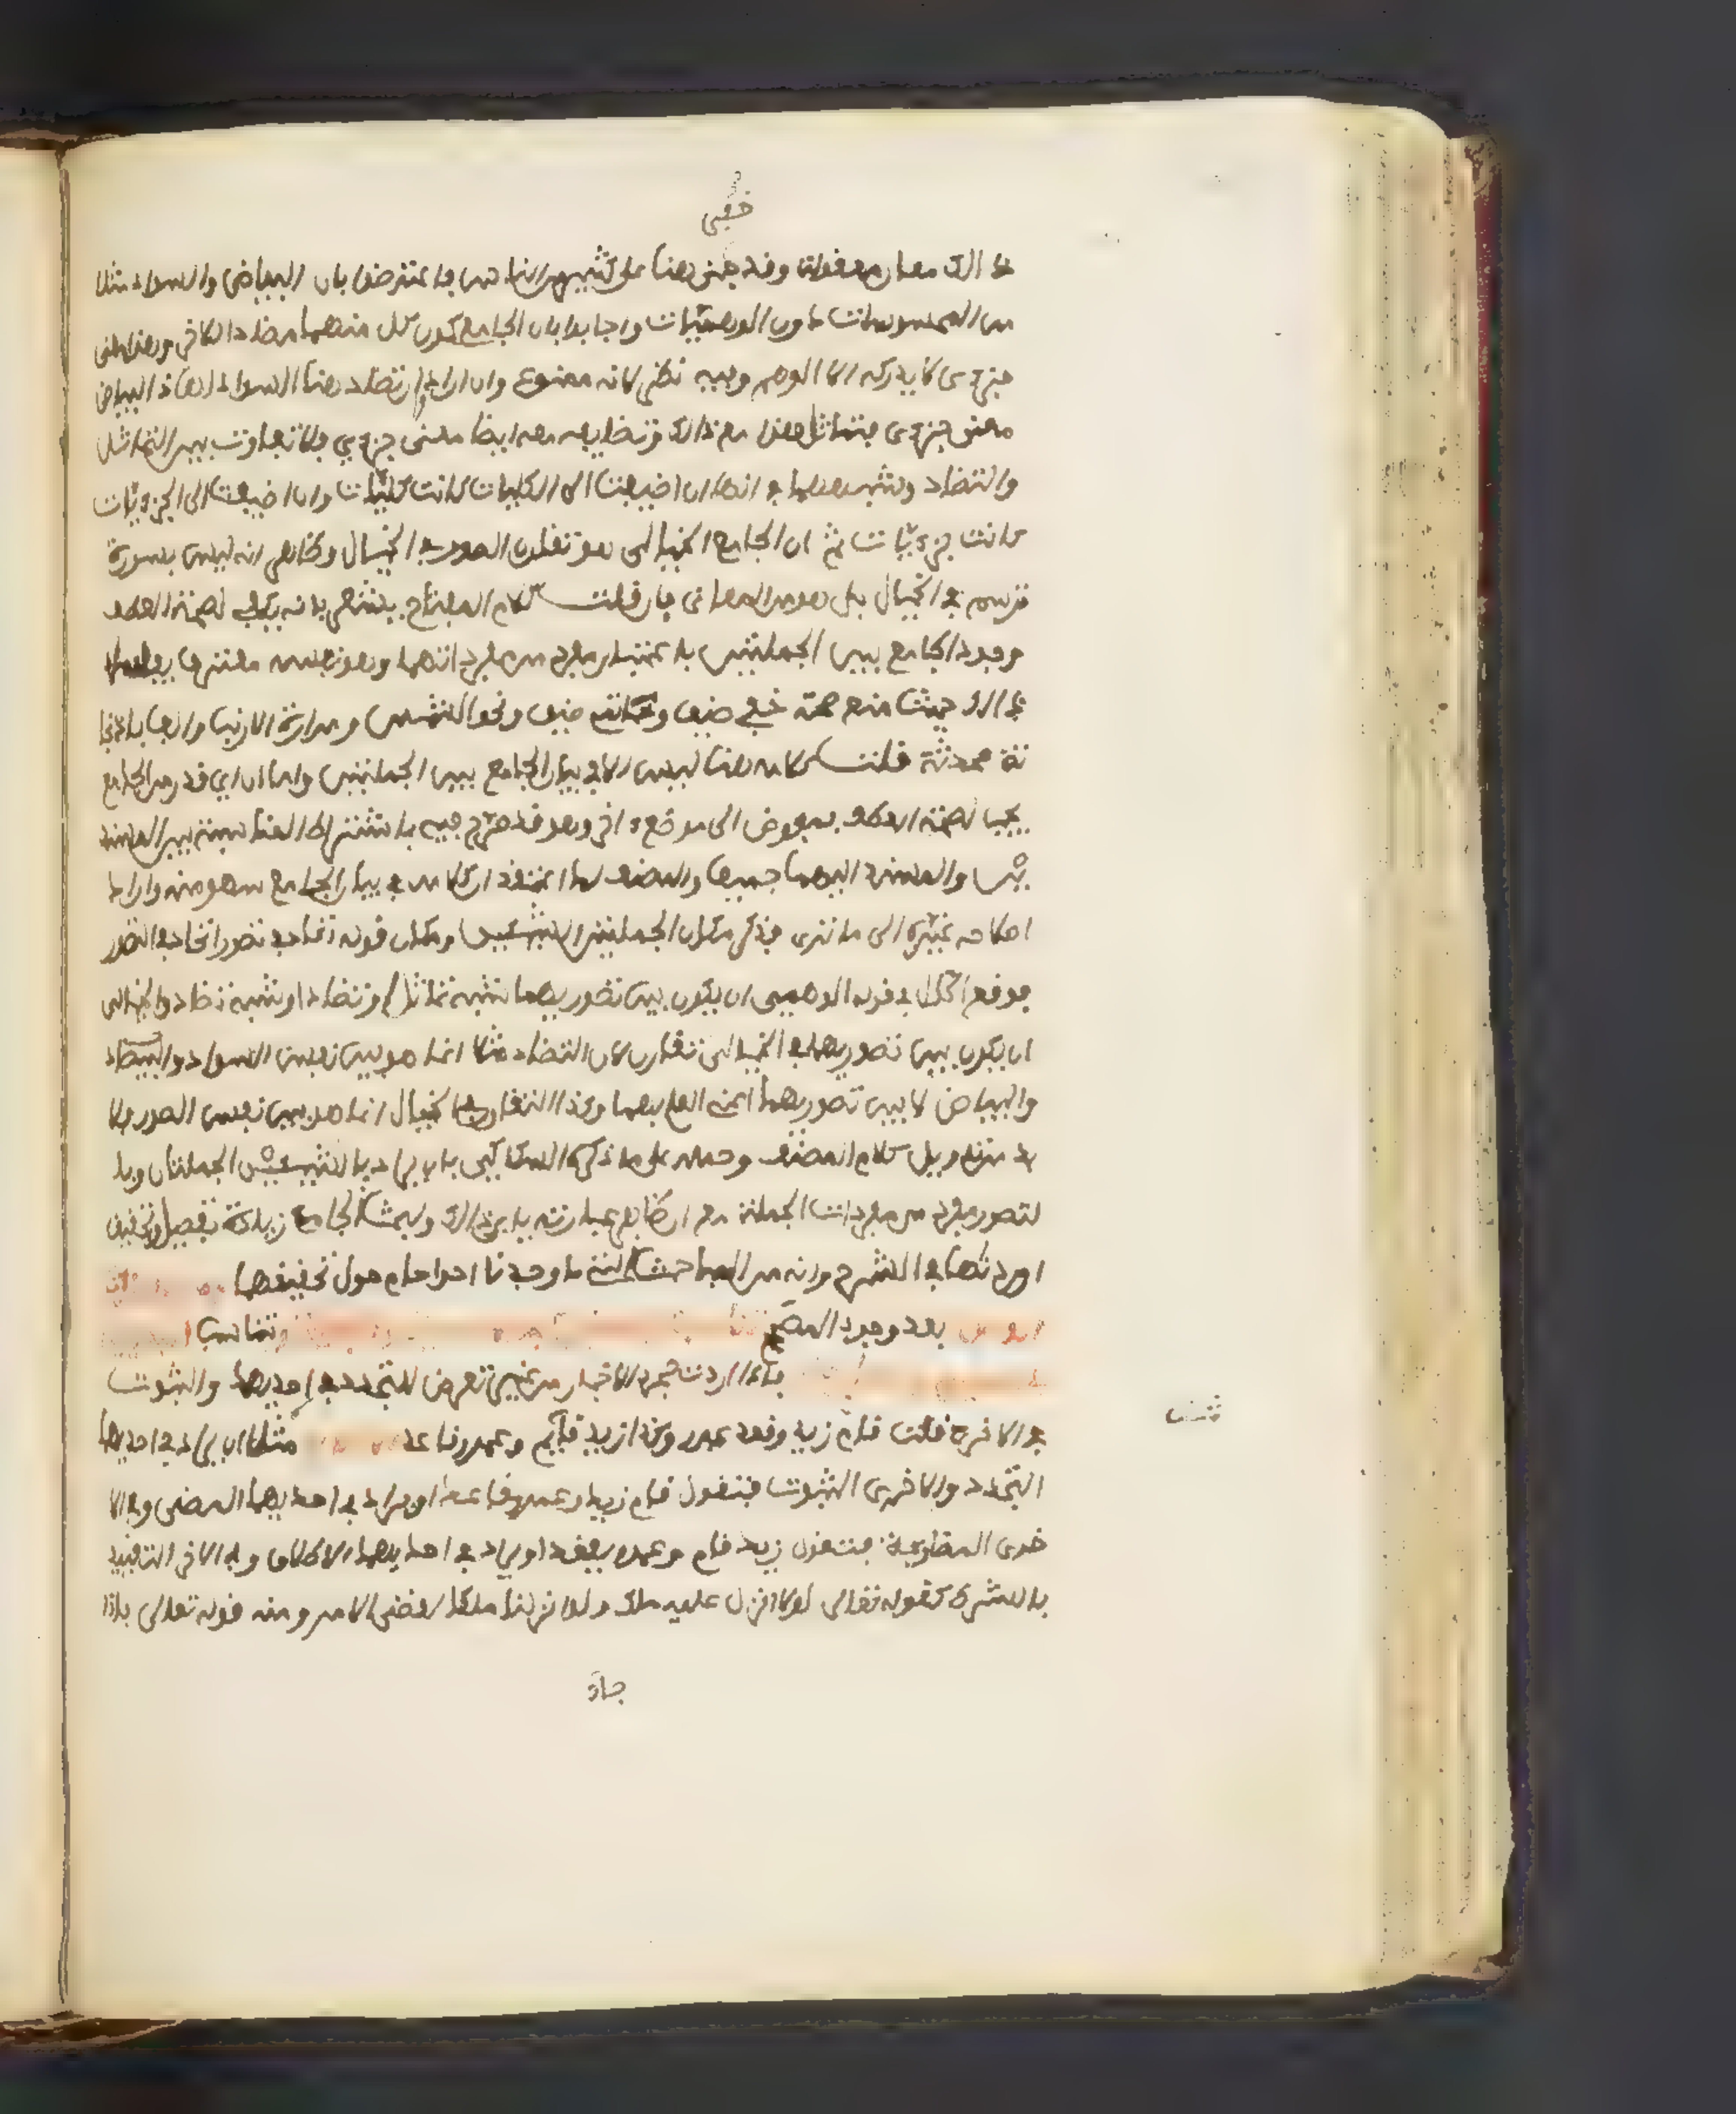 خفى
ذالك معان معقولة وقد خفى هذا على كثير من الناس فاعترضوا بان البياض والسواد مثلا
من المحسوسات دون الوهميات واجابوا بان الجامع كون كل منهما مضادا للاخر وهذا معنى
جزءى لا يدركه الا الوهم وفيه نظر لانه ممنوع وان ارادوا ان تضاد هذا السواد لهذا البياض
معنى جزءى فتماثل هذا مع ذالك وتضايفه معه ايضا معنى جزءي فلا تفاوت بين التماثل
والتضاد وشبههما في انها ان اضيفت الى الكليات كانت كليات وان اضيفت الى الجزءيات
كانت جزءيات ثم ان الجامع الخيالى هو تقارن الصور في الخيال وظاهر انه ليس بصورة
ترسم في الخيال بل هو من المعانى فان قلت كلام المفتاح يشعر بانه يكفى لصحة العطف
وجود الجامع بين الجملتين باعتبار مفرد من مفرداتهما وهو نفسه معترف بفساد
ذالك حيث منع صحة خفى ضيق وخاتمى ضيق ونحو الشمس ومرارة الارنب والف باذنجا
نة محدثة قلت كلامه هنا ليس الا في بيان الجامع بين الجملتين واما ان اي قدر من الجامع
يجب لصحة العطف فمفوض الى موضع ءاخر وهو قد صرح فيه باشتراط المناسبة بين المسند
ين والمسند اليهما جميعا والمصنف لما اعتقد ان كلامه في بيان الجامع سهو منه واراد
اصلاحه غيره الى ما ترى فذكر مكان الجملتين الشيئين ومكان قوله اتحاد في تصور اتحاد في التصور
فوقع الخلل في قوله الوهمى ان يكون بين تصوريهما شبه تماثل او تضاد او شبه تضاد والخيالى
ان يكون بين تصوريهما في الخيالى تقارن لان التضاد مثلا انما هو بين نفس السواد
والبياض لا بين تصوريهما اعنى العلم بهما وكذا التقارن في الخيال انما هو بين نفس الصور فلا
بد من تاويل كلام المصنف وحمله على ما ذكره السكاكى بان يراد بالشيئين الجملتان وبا
لتصور مفرد من مفردات الجملة مع ان ظاهر عبارته يابى ذالك ولبحث الجامع زيادة تفصيل وتحقيق
اوردناها في الشرح وانه من المباحث التى ما وجدنا احدا حام حول تحقيقها
بعد وجود المصحح
فاذا اردت مجرد الاخبار من غير تعرض للتجدد في احديهما والثبوت
في الاخرى قلت قام زيد وقعد عمرو وكذا زيد قائم وعمرو قاعد مثل ان يراد في احديهما
التجدد والاخرى الثبوت فتقول قام زيد وعمرو قاعد او يراد في احديهما المضى وفى الا
خرى المضارعة فتقول زيد قام وعمرو يقعد او يراد في احديهما الاطلاق وفى الاخرى التقييد
بالشرط كقوله تعالى لولا انزل عليه ملك ولو انزلنا ملكا لقضى الامر ومنه قوله تعالى فاذا
جاء